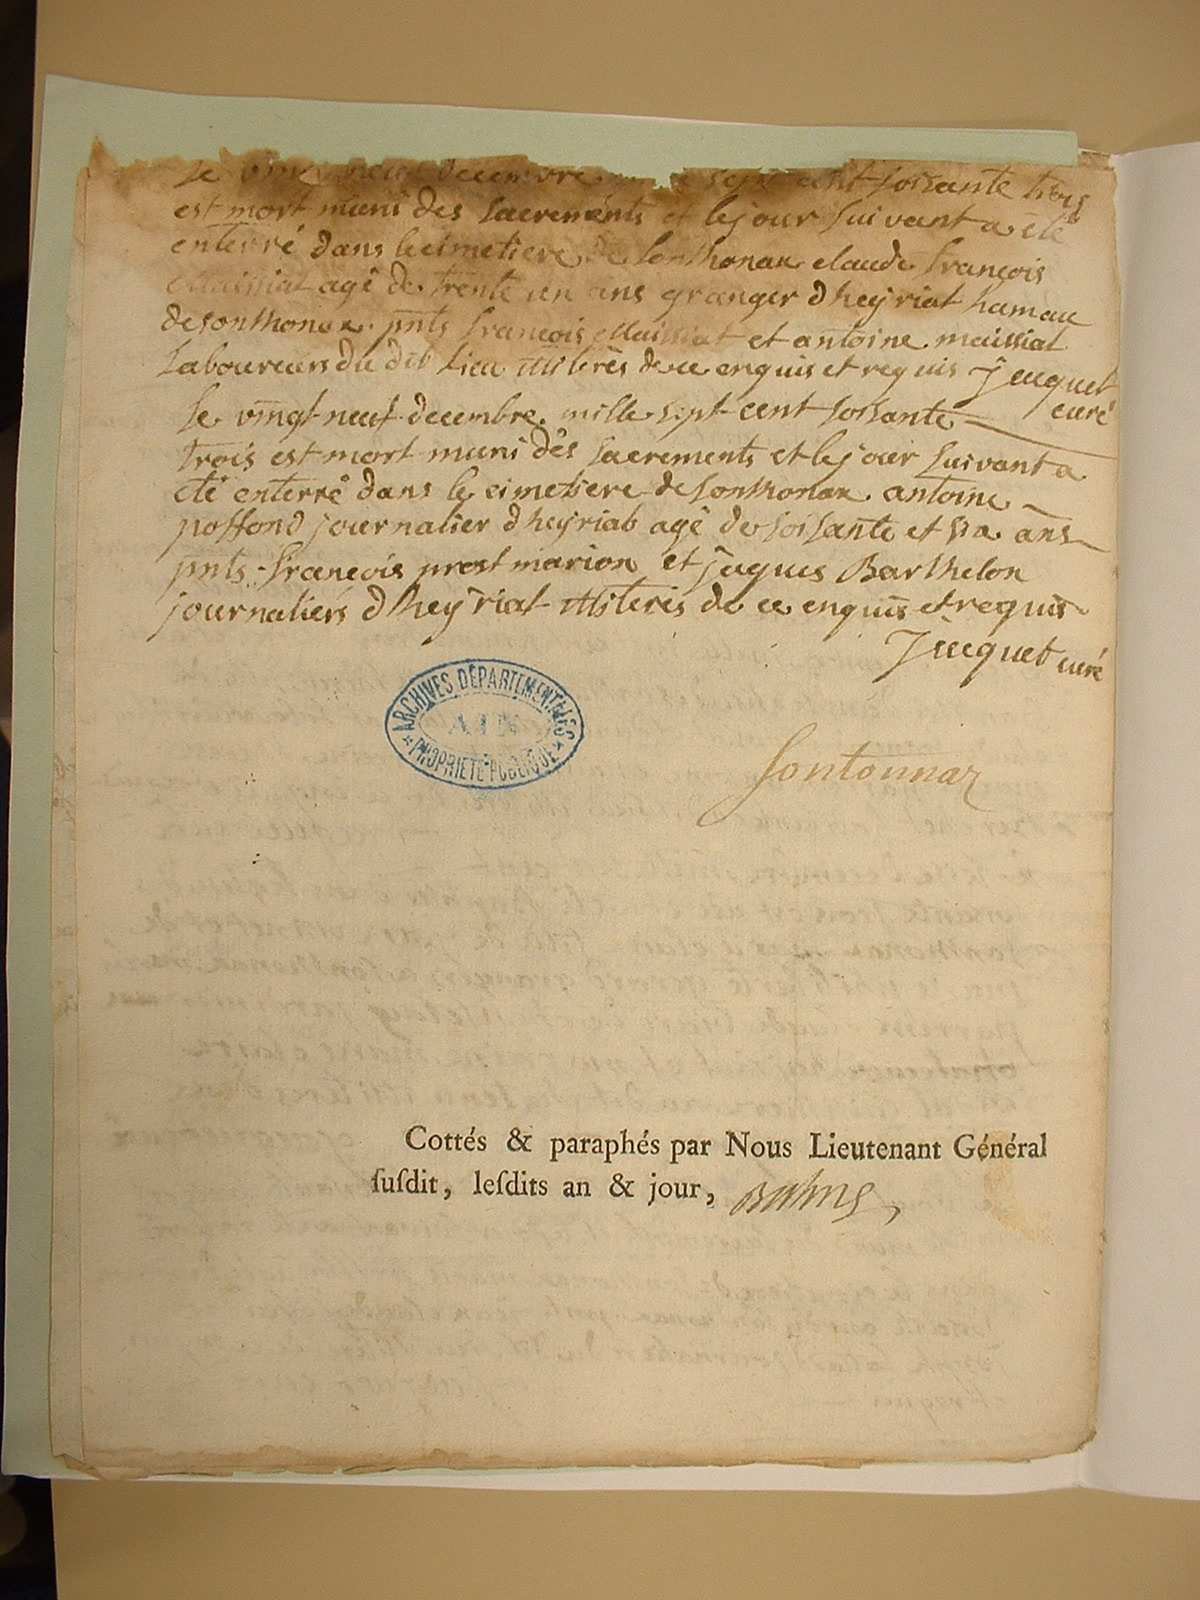 le vingt neuf decembre mille sept cent soisante trois
est mort muni des sacrements et le jour suivant a été
enterré dans le cimetiere de sonthonax claude françois
Maissiat agé de trente un ans granger dheyriat hamau
de sonthonax. pnts françois Maissiat et antoine maissiat
Laboureurs du dit lieu illiterés de ce enquis et requis Jacquet
curé
le vingt neuf decembre mille sept cent soisante
trois est mort muni des sacrements et le jour suivant a
eté enterré dans le cimetiere de sonthonax antoine
poffond journalier dheyriat agé de soisante et six ans
pnts françois prost marion et jaques Barthelon
journaliers dheyriat illiterés de ce enquis et requis
Jacquet curé
ARCHIVES DÉPARTEMENTALES
AIN
PROPRIÉTÉ PUBLIQUE
Sontonnax
Cottés & paraphés par Nous Lieutenant Général
ſuſdit, leſdits an & jour,